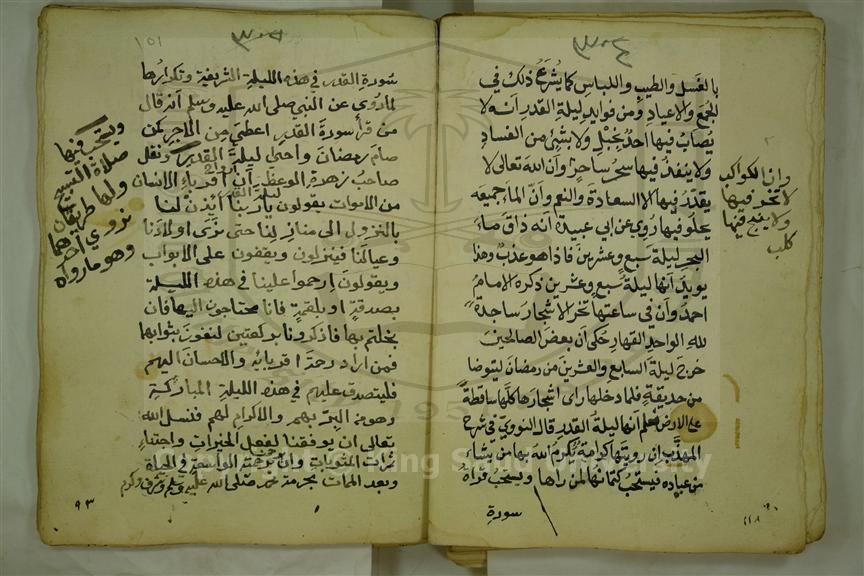 بالغسل والطيب واللباس كما يشرع ذلك في
الجمع والاعياد ومن فوايد ليلة القدر انه لا
يصاب فيها احد بخبل ولا بشئ من الفساد
ولا ينفذ فيها سحر ساحر وان الله تعالى لا
يقدر فيها الا السعادة والنعم وان الماء جميعه
يحلو فيها روي عن ابي عبيدة انه ذاق ماء
البحر ليلة سبع وعشرين فاذا هو عذب وهذا
يويد انها ليلة سبع وعشرين ذكره الامام
احمد وان في ساعتها تخر الاشجار ساجدة
لله الواحد القهار حكى ان بعض الصالحين
خرج ليلة السابع والعشرين من رمضان ليتوضا
من حديقة فلما دخلها راى اشجارها كلها ساقطة
على الارض فعلم انها ليلة القدر قال النووي في شرح
المهذب ان رويتها كرامة يكرم الله بها من يشاء
من عباده فيستحب كتمانها لمن راها ويستحب قراة
سورة
وان الكواكب
لا تخر فيها
ولا ينبح فيها
كلب
سورة القدر في هذه الليلة الشريفة وتكرارها
لما روي عن النبي صلى الله عليه وسلم انه قال
من قرأ سورة القدر اعطي من الاجر كمن
صام رمضان واحيى ليلة القدر ونقل
صاحب زهرة الموعظة ان اقرباء الانسان
من الاموات يقولون يا ربنا ائذن لنا
بالنزول الى منازلنا حتى نرى اولادنا
وعيالنا فينزلون ويقفون على الابواب
ويقولون ارحموا علينا في هذه الليلة
بصدقة او بلقمة فانا محتاجون اليها فان
بخلتم بها فاذكرونا بركعتين لنفوز بثوابها
فمن اراد رحمة اقربائه والاحسان اليهم
فليتصدق عليهم في هذه الليلة المباركة
وهو من البر بهم والاكرام لهم فنسل الله
تعالى ان يوفقنا لفعل الخيرات واجتناء
ثمرات المثوبات رحمته الواسعة في الحياة
وبعد الممات بحرمة محمد صلى الله عليه وسلم وشرف وكرم
ويستحب فيها
صلاة التسبيح
ولها طريقتان
نروي احدهما
وهو ما رواه
٩٣